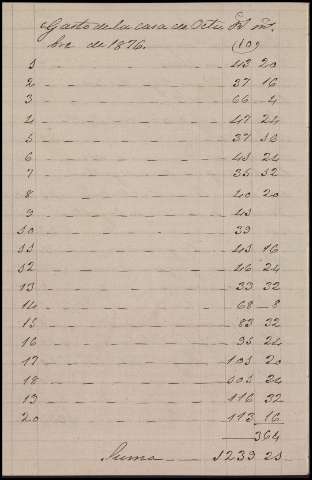 Gasto de la casa de Octu
bre de 1876.
(10)
1 43 20
2 37 16
3 66 4
4 47 24
5 37 16
6 45 24
7 35 32
8 40 20
9 45
10 39
11 45 16
12 46 24
13 33 32
14 68 8
15 83 32
16 95 24
17 105 20
18 105 24
19 116 32
20 113 16
364
Suma 1239 25